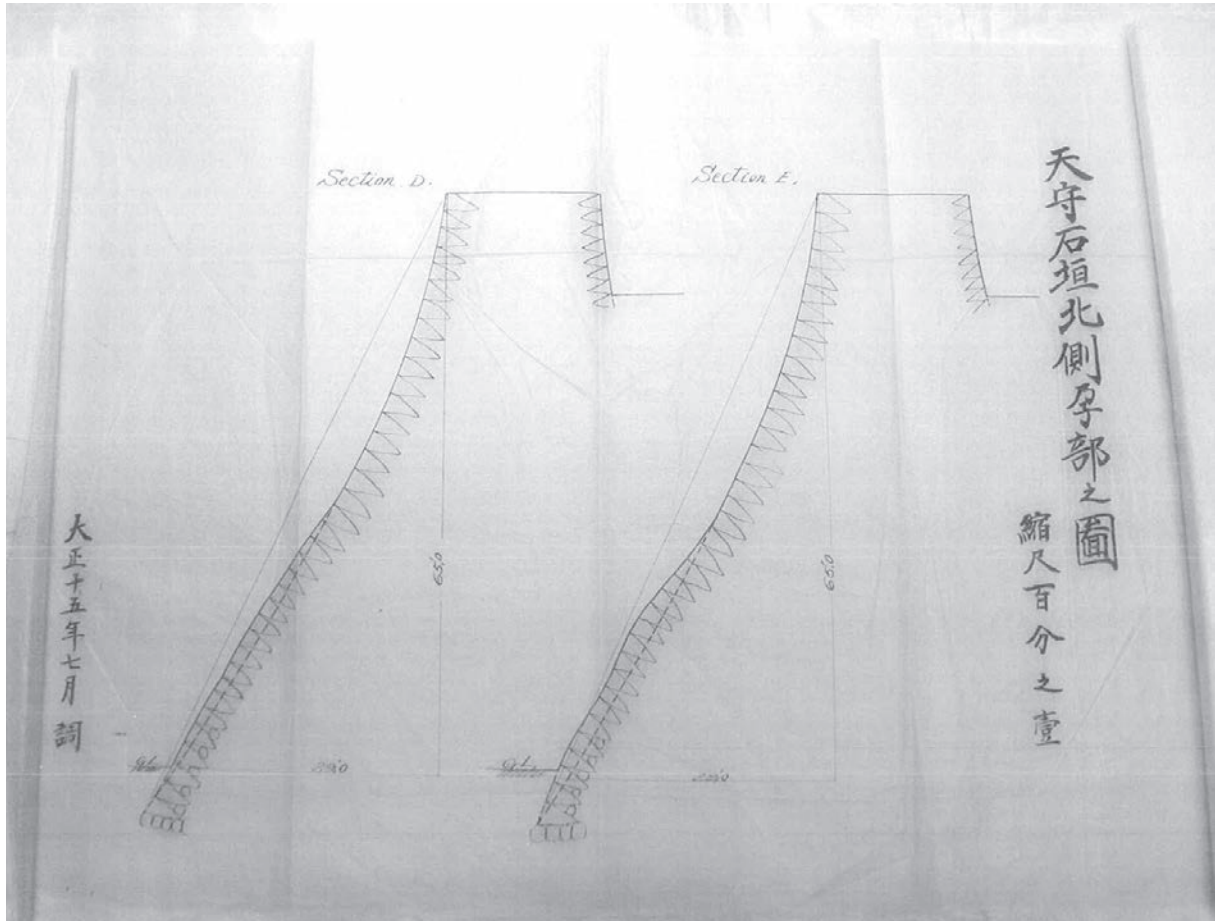 天守石垣北側孕部之圖
縮尺百分之壹
Section D.
Section E.
65.0
65.0
G.L.
G.L.
大正十五年七月 調